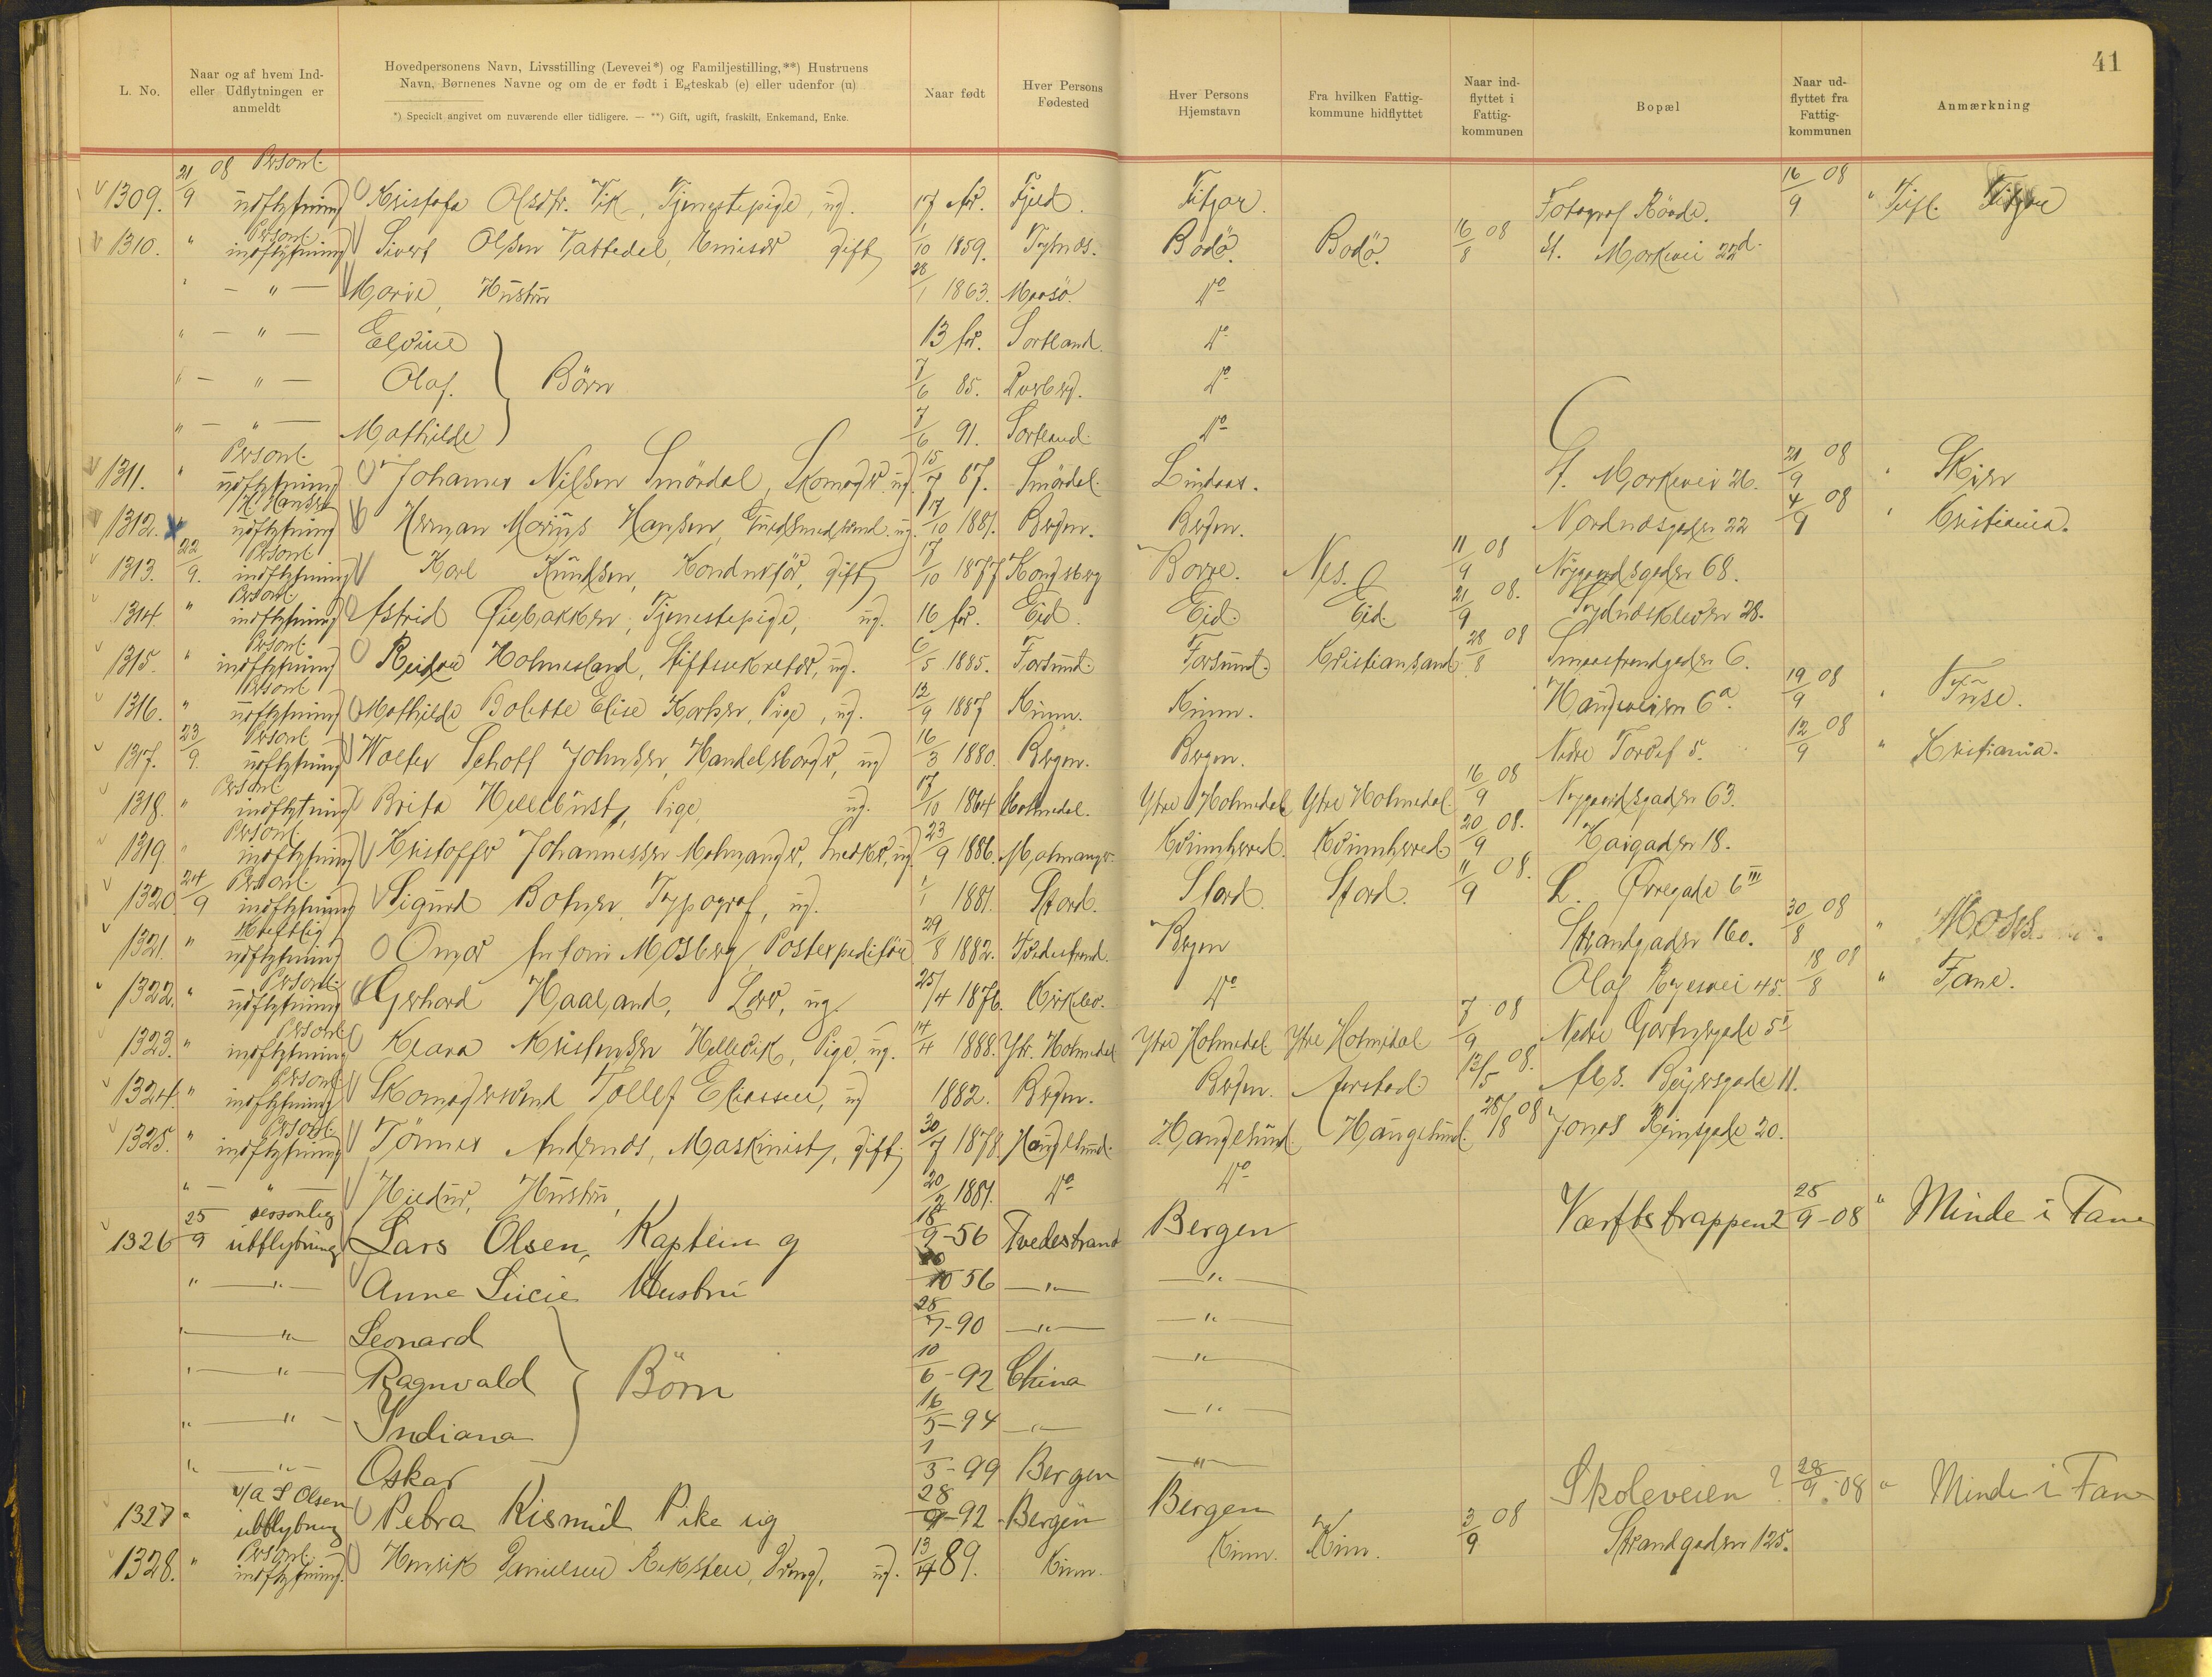 41
L. No.
Naar og af hvem Ind- eller Udflytningen er anmeldt
Hovedpersonens Navn, Livsstilling (Levevei*) og Familjestilling,**) Hustruens Navn, Børnenes Navne og om de er født i Egteskab (e) eller udenfor (u)
*) Specielt angivet om nuværende eller tidligere. — **) Gift, ugift, fraskilt, Enkemand, Enke.
Naar født
Hver Persons Fødested
Hver Persons Hjemstavn
Fra hvilken Fattig- kommune hidflyttet
Naar ind- flyttet i Fattig- kommunen
Bopæl
Naar ud- flyttet fra Fattig- kommunen
Anmærkning
1309. 21/9 08 Personl. udflytning Kristofa Olsdtr. Vik, Tjenestepige, ug. 17 Aar. Fjeld. Fitjar. Fotograf 16/9 08 " Fitjar
1310. " Personl. indflytning Sivert Olsen gift 1/10 1859. Bodö. Bodö. 16/8 08 St. Markevei 22d.
" — " — Marie, Hustru 28/1 1863. Maasö. Do
" — " — Elvine 13 Aar. Sortland. Do
" — " — Olaf. Börn 7/6 85. Do
" — " — Mathilde 7/6 91. Sortland. Do
1311. " Personl. udflytning Johannes Nilsen Smördal, Skomager ug. 15/7 87. Smördal. Lindaas. St. Markevei 26. 21/9 08 " Skien
1312. " M. Hansen udflytning Herman Marius Hansen, Guldsmedsvend ug. 17/10 1881. Bergen. Bergen. Nordnæsgaden 22 4/9 08 " Kristiania.
1313. 22/9. Personl. indflytning Karl Knudsen, Konduktör, gift 17/10 1877 Kongsberg Borre. Nes. 11/9 08 Nygaardsgaden 68.
1314. " Personl. indflytning Astrid Öiebakken, Tjenestepige, ug. 16 Aar. Eid. Eid. Eid. 21/9 08. Sydnæskleven 28.
1315. " Personl. indflytning Reidar Holmesland, Stiftsekretær, ug. 6/5 1885. Farsund. Farsund. Kristiansand 28/8 08 Smaastrandgaden 6.
1316. " Personl. udflytning Mathilde Bolette Elise Karlsen, Pige, ug. 12/9 1887 Kinn. Kinn. Haugeveien 6a. 19/9 08 " Fuse.
1317. 23/9. Personl. udflytning Wolter Schott Johnsen, Handelsborger, ug 16/3 1880. Bergen. Bergen. Nedre 5. 12/9 08 " Kristiania.
1318. " Personl. indflytning Brita Hellebust, Pige, ug. 17/10 1864 Holmedal. Ytre Holmedal Ytre Holmedal. 16/9 08 Nygaardsgaden 63.
1319 " Personl. indflytning Kristoffer Johannessen Malmanger, Snedker, ug 23/9 1886. Malmanger. Kvinnherred. Kvinnherred. 20/9 08. Kaigaden 18.
1320. 24/9 Personl. indflytning Sigurd Botnen, Typograf, ug. 1/1 1881. Stord. Stord. Stord. 11/9 08. L. Övregade 6III
1321. " Skriftlig udflytning Omar Antoni Mosberg, Postexpeditör 29/8 1882. Tvedestrand. Bergen Strandgaden 160. 30/8 08 " Moss.
1322. " Personl. udflytning Gerhard Haaland, Lærer, ug. 25/4 1876. Do Olaf Ryesvei 45. 18/8 08 " Fane.
1323. " Personl. indflytning Klara Kristensen Hellevik, Pige, ug. 14/4 1888. Ytr. Holmedal Ytre Holmedal Ytre Holmedal 7/9 08 Nedre Gartnergade 5
1324. " Personl. indflytning Skomagersvend Tollef Eliassen, ug 1882. Bergen. Bergen. Aarstad. 13/5 08. Abs. Beijersgade 11.
1325. " Personl. indflytning Tönnes Andersen, Maskinist, gift 30/7 1878. Haugesund. Haugesund. Haugesund. 28/8 08 Jonas Reinsgade 20.
" — " — Hildur, Hustru, 20/2 1881. Do Do
1326 25/9 personlig udflytning Lars Olsen, Kaptein g 18/9-56 Tvedestrand Bergen Værftstrappen 2 25/9-08 " Minde i Fane
" — " — Anne Lucie Hustru 10 56 — " — — " —
" — " — Leonard 28/7-90 — " — — " —
" — " — Ragnvald Börn 10/6-92 China — " —
" — " — Indiana 16/5-94 — " — — " —
" — " — Oskar 1/3-99 Bergen — " —
1327 " v/a L Olsen udflytning Petra Kismul Pike ug 28/9-92 Bergen Bergen Skoleveien ? 28/9-08 " Minde i Fane
1328. " Personl. indflytning. Henrik Danielsen Reksten, Dreng, ug. 13/4 89. Kinn. Kinn. Kinn. 3/9 08 Strandgaden 125.